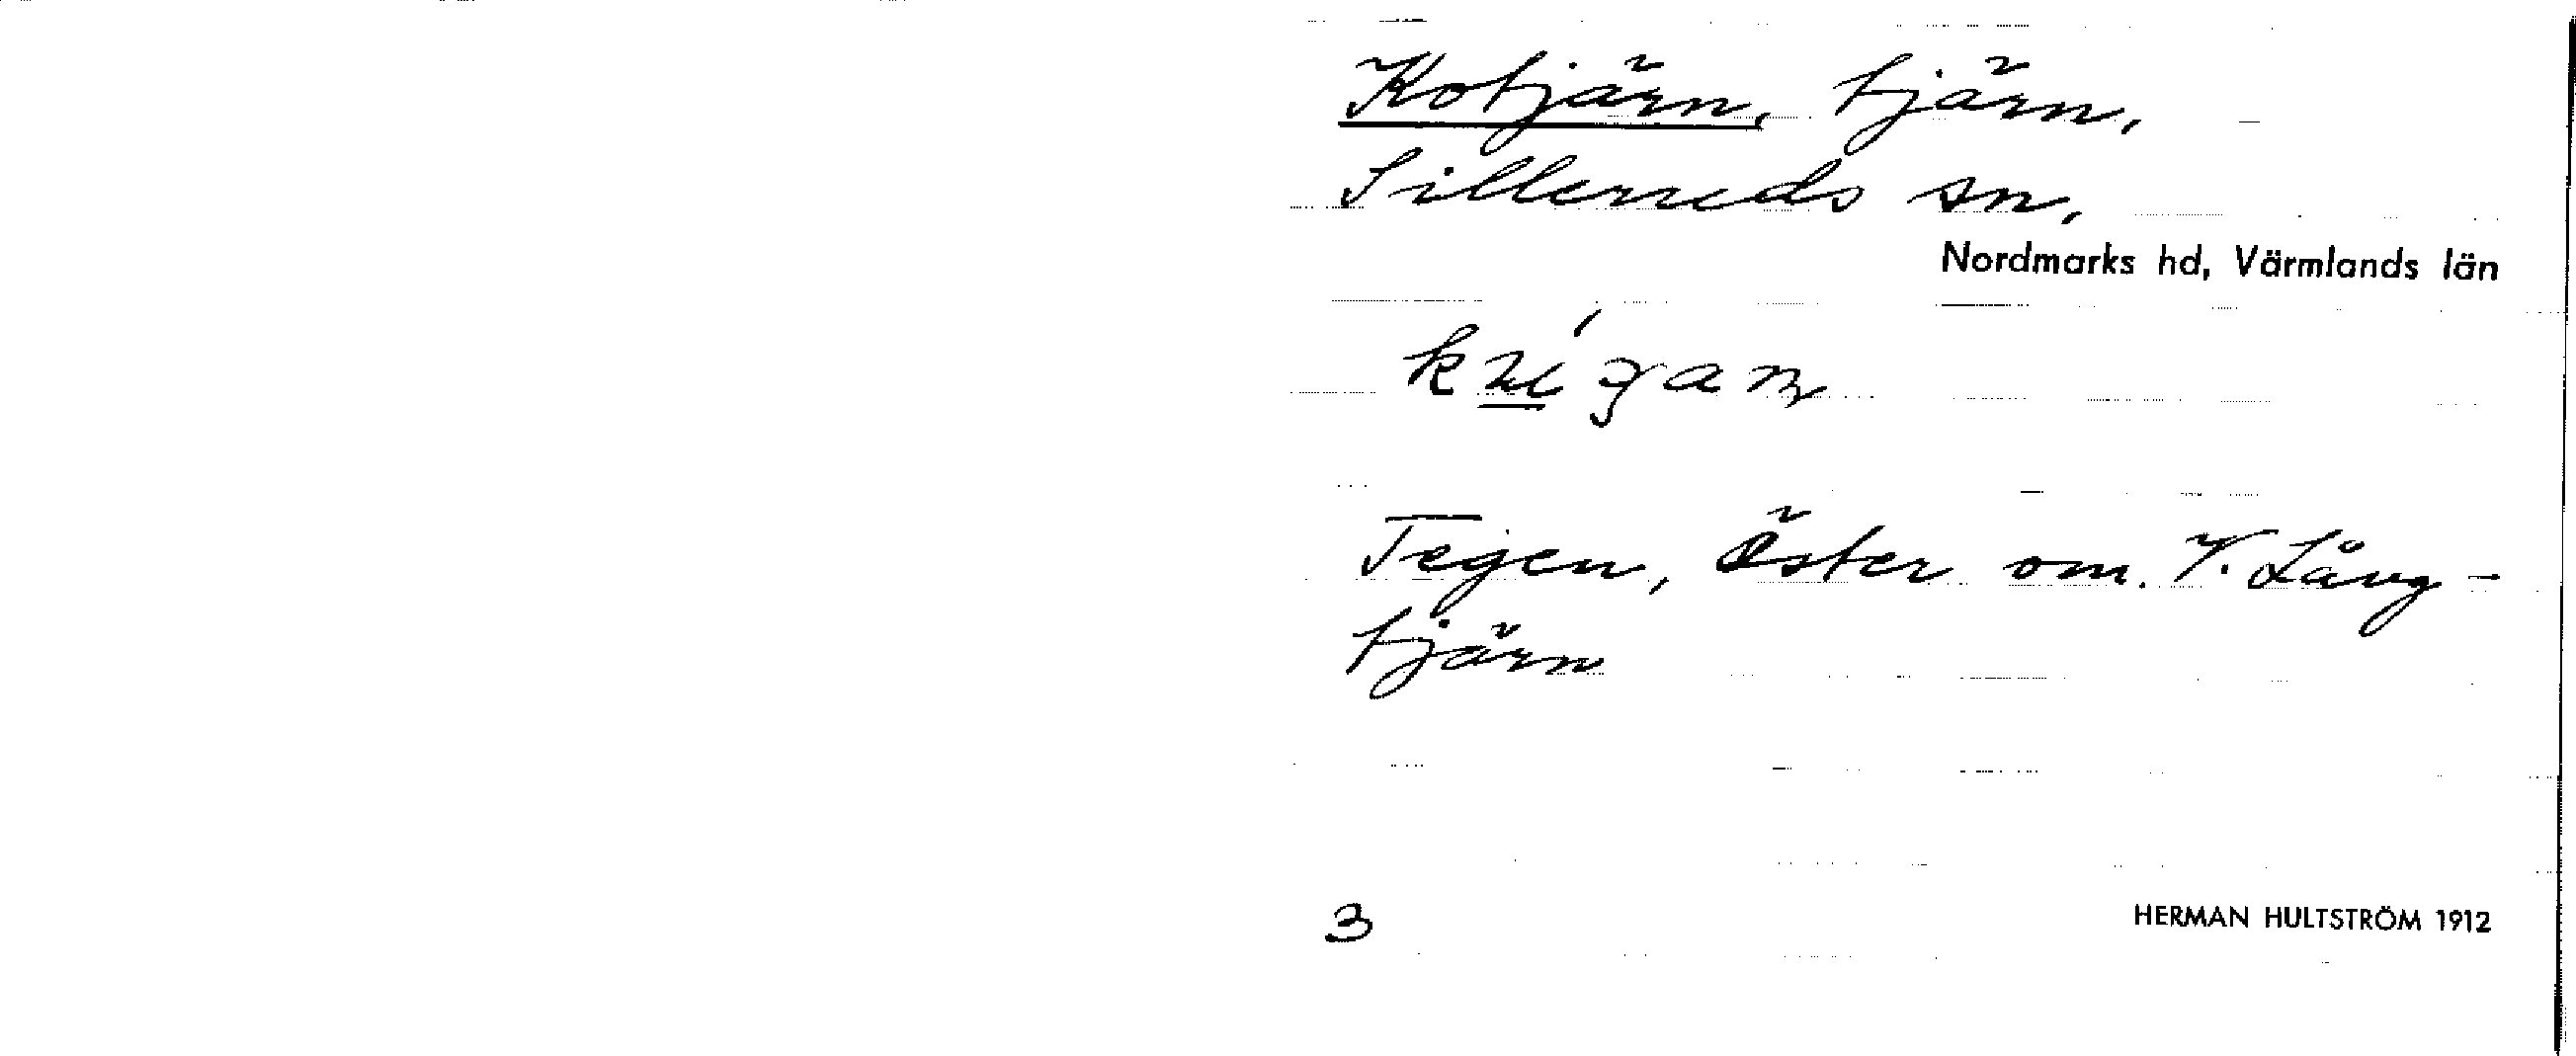 Kotjärn, tjärn,
Silleruds sn,
Nordmarks hd, Värmlands län
Tegen, Öster om V. Lång-
tjärn
3
HERMAN HULTSTRÖM 1912